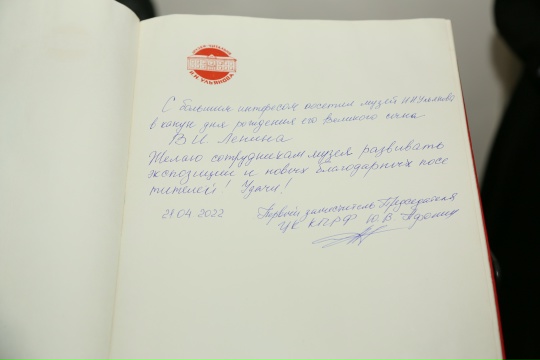 МУЗЕЙ
И.Н. УЛЬЯНОВА
С большим интересом посетил музей И Н Ульянова
в канун дня рождения его великого сына
В И Ленина
Желаю сотрудникам музея развивать
экспозицию и новых благодарных посе
тителей! Удачи!
21.04.2022 Первый заместитель Председателя
ЦК КПРФ Ю В Афонин